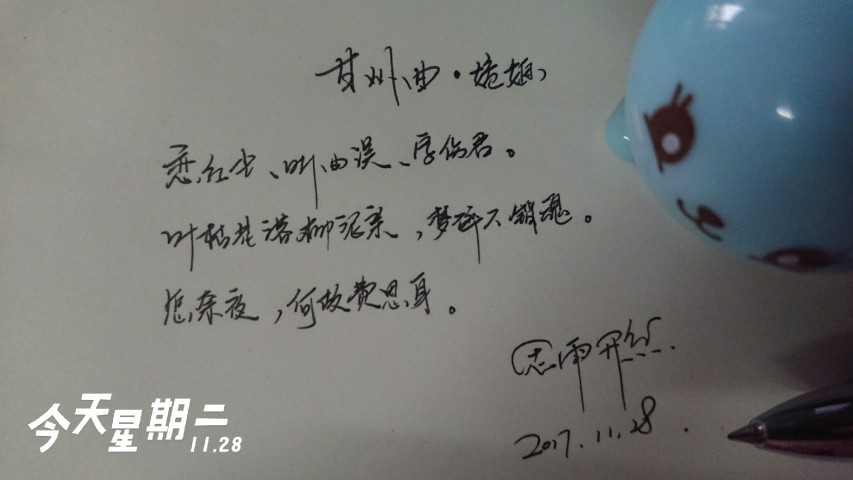 甘州曲·
恋红尘、叫曲误、字伤君。
叶枯花落柳泥亲，梦碎不销魂。
夜，何故费思身。
思雨
2017.11.28
今天星期二
11.28